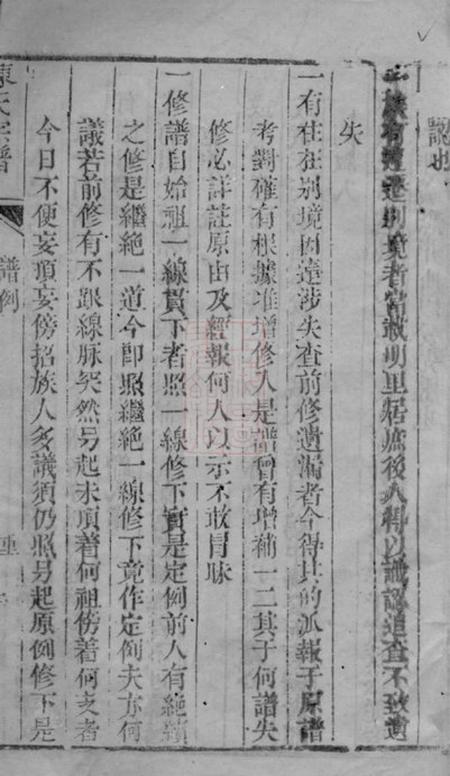 認也
一族有遷遷別境者當載明里居庶後人得以識認追查不致遺
失
一有在在別境因遠涉失查前修遺漏者今得其的派報于原譜
考對確有根據准增修入是譜曾有增補一二其于何譜失
修必詳註原由及經報何人以示不敢冒昧
一修譜自始祖一線貫下者照一線修下實是定例前人有絕續
之修是繼絕一道今卽照繼絕一線修下竟作定例夫亦何
議若前修有不跟線脉突然另起未頂着何祖傍着何支者
今日不便妄頂妄傍招族人多議須仍照另起原例修下是
陳氏宗譜
譜例